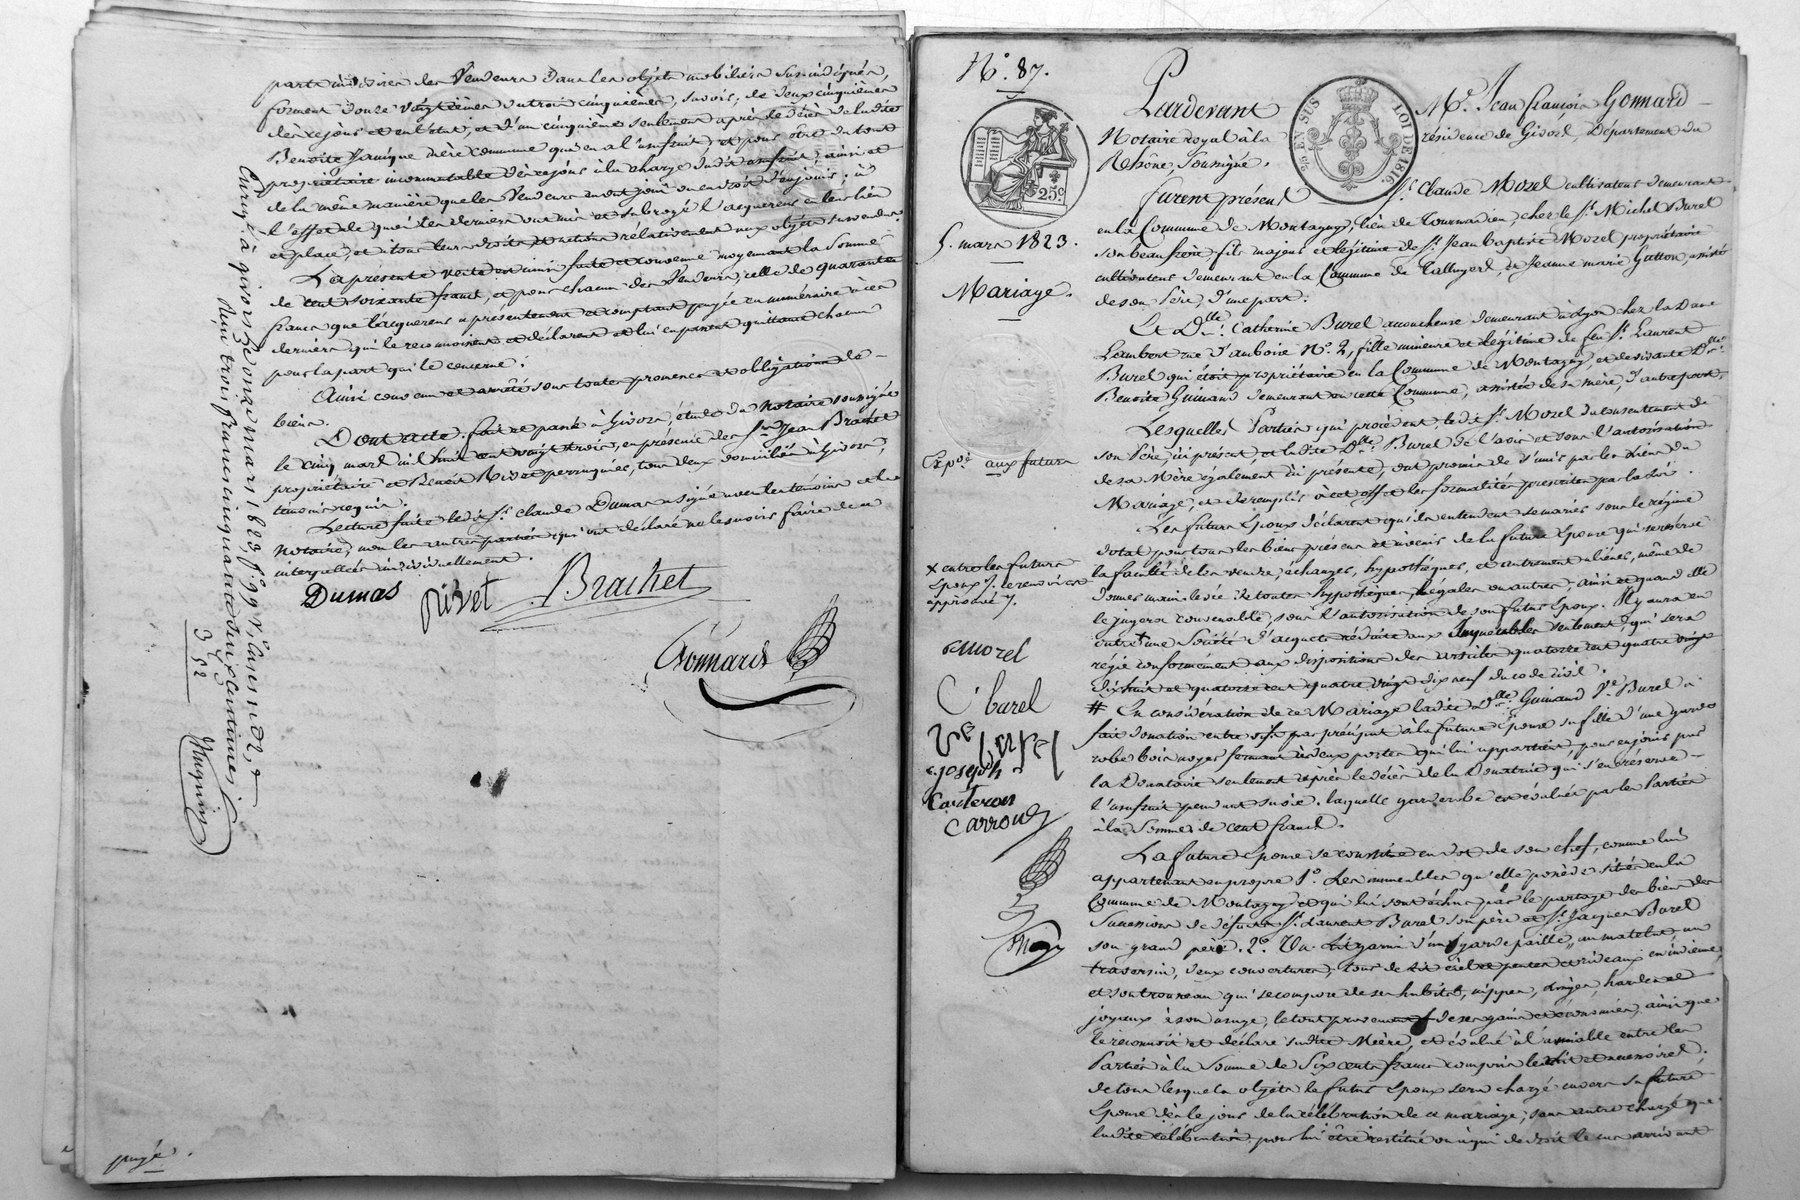 parts indivises des Vendeurs dans les objets mobiliers sus indiqués,
forment douze vingtièmes ou trois cinquièmes, savoir; de deux cinquièmes
dès ce jour et en l'état, et d'un cinquième seulement après le décès de ladite
Benoite mère commune qui en a l'usufruit, et pour être du tout
propriétaire incommutable dès ce jour à la charge dudit usufruit; ainsi et
de la même manière que les Vendeurs en ont joui ou eu droit d'en jouir; à
l'effet de quoi les derniers ont mis et subrogé l'acquéreur en leur lieu
et place, et à tous leurs droits et actions relativement aux objets susvendus.
La présente vente est ainsi faite et convenue moyennant la somme
de cent soixante francs, et pour chacun des Vendeurs, celle de quarante
francs que l'acquéreur a présentement et comptant payée en numéraire à ces
derniers qui le reconnoissent et déclarent et lui en passent quittance chacun
pour la part qui le concerne.
Ainsi convenu et arrêté sous toutes promesses et obligations de
biens.
Dont acte. fait et passé à Givors, étude du notaire soussigné
le cinq mars mil huit cent vingt trois, en présence des Srs Jean Brachet
propriétaire et Benoit Rivet perruquier, tous deux domiciliés à Givors,
témoins requis.
Lecture faite ledit Sr. Claude Dumas a signé avec les témoins et le
Notaire, non les autres parties qui ont déclaré ne le savoir faire de ce
interpellées individuellement.
Dumas Rivet Brachet
Gonnard
Enreg.é à givors le onze mars 1823, f.o 99
Reçu trois francs cinquante deux centimes
3 52
payé.
N.o 87.
25c
25 EN SUS
LOI DE 1816.
5. mars 1823.
Mariage.
Expé. aux futurs
x entre les futurs
époux /. le renvoi est
approuvé /.
Morel
C. burel
ve burel
joseph
Carteron
Carrond
Pardevant Me. Jean François Gonnard
Notaire royal à la résidence de Givors, Département du
Rhône, soussigné.
furent présens Sr. Claude Morel cultivateur demeurant
en la Commune de Montagny, lieu de Tourmandieu, chez le Sr. Michel Burel
son beau frère fils majeur et légitime de Sr. Jean baptiste Morel propriétaire
cultivateur demeurant en la Commune de Taluyers, et Jeanne marie Gutton, assisté
de son Père, d'une part;
Et Dlle. Catherine Burel accoucheuse demeurant à Lyon chez la Dame
Lambert rue d'auboire No. 2, fille mineure et légitime de feu Sr. Laurent
Burel qui étoit propriétaire en la Commune de Montagny, et de vivante Dlle.
Benoite Guinand demeurant en cette Commune, assistée de sa mère, d'autre part.
Lesquelles Parties qui procèdent, ledit Sr. Morel du consentement de
son Père, ici présent, et ladite Dlle. Burel de l'avis et sous l'autorisation
de sa Mère également ici présente, ont promis de s'unir par les liens du
Mariage, et de remplir à cet effet les formalités prescrites par la loi.
Les futurs Epoux déclarent qu'ils entendent se marier sous le régime
dotal pour tous les biens présens et à venir de la future Epouse qui se réserve
la faculté de les vendre, échanger, hypothéquer, et autrement aliéner, même de
donner main-levée de toutes hypothèques, légales ou autres, ainsi et quand elle
le jugera convenable, sous l'autorisation de son futur Epoux. Il y aura en
outre x une Société d'acquets réduite aux Immeubles seulement, qui sera
régie conformément aux dispositions des articles quatorze cent quatre vingt
dix huit et quatorze cent quatre vingt dix neuf du code civil.
# En considération de ce Mariage ladite Dlle. Guinand Ve. Burel a
fait donation entre vifs par préciput à la future Epouse sa fille d'une garde
robe bois noyer fermant à deux portes qui lui appartient, pour en jouir par
la Donatoire seulement après le décès de la Donatrice qui s'en réserve
l'usufruit pendant sa vie. laquelle garderobe est évaluée par les Parties
à la Somme de cent francs.
La future Epouse se constitue en dot de son chef, comme lui
appartenant en propre 1o. Les immeubles qu'elle possède situés en la
Commune de Montagny et qui lui sont échus par le partage des biens des
Successions de défunts Sr. Laurent Burel son père et Sr. Jacques Burel
son grand père. 2o. Un Lit garni d'un garde paille, un matelat, un
traversin, deux couvertures, tour de Lit ciel et pentes et rideaux en indienne,
et son trousseau qui se compose de ses habits, nippes, linges, hardes et
joyaux à son usage, le tout provenant de ses gains et économies, ainsi que
le reconnoit et déclare sadite Mère, et évalué à l'amiable entre les
Parties à la Somme de Six cents francs compris le dit
de tous lesquels objets le futur Epoux sera chargé envers sa future
Epouse dès le jour de la célébration de ce mariage, sans autre charge que
ladite célébration, pour lui être restitué ou à qui de droit le cas arrivant